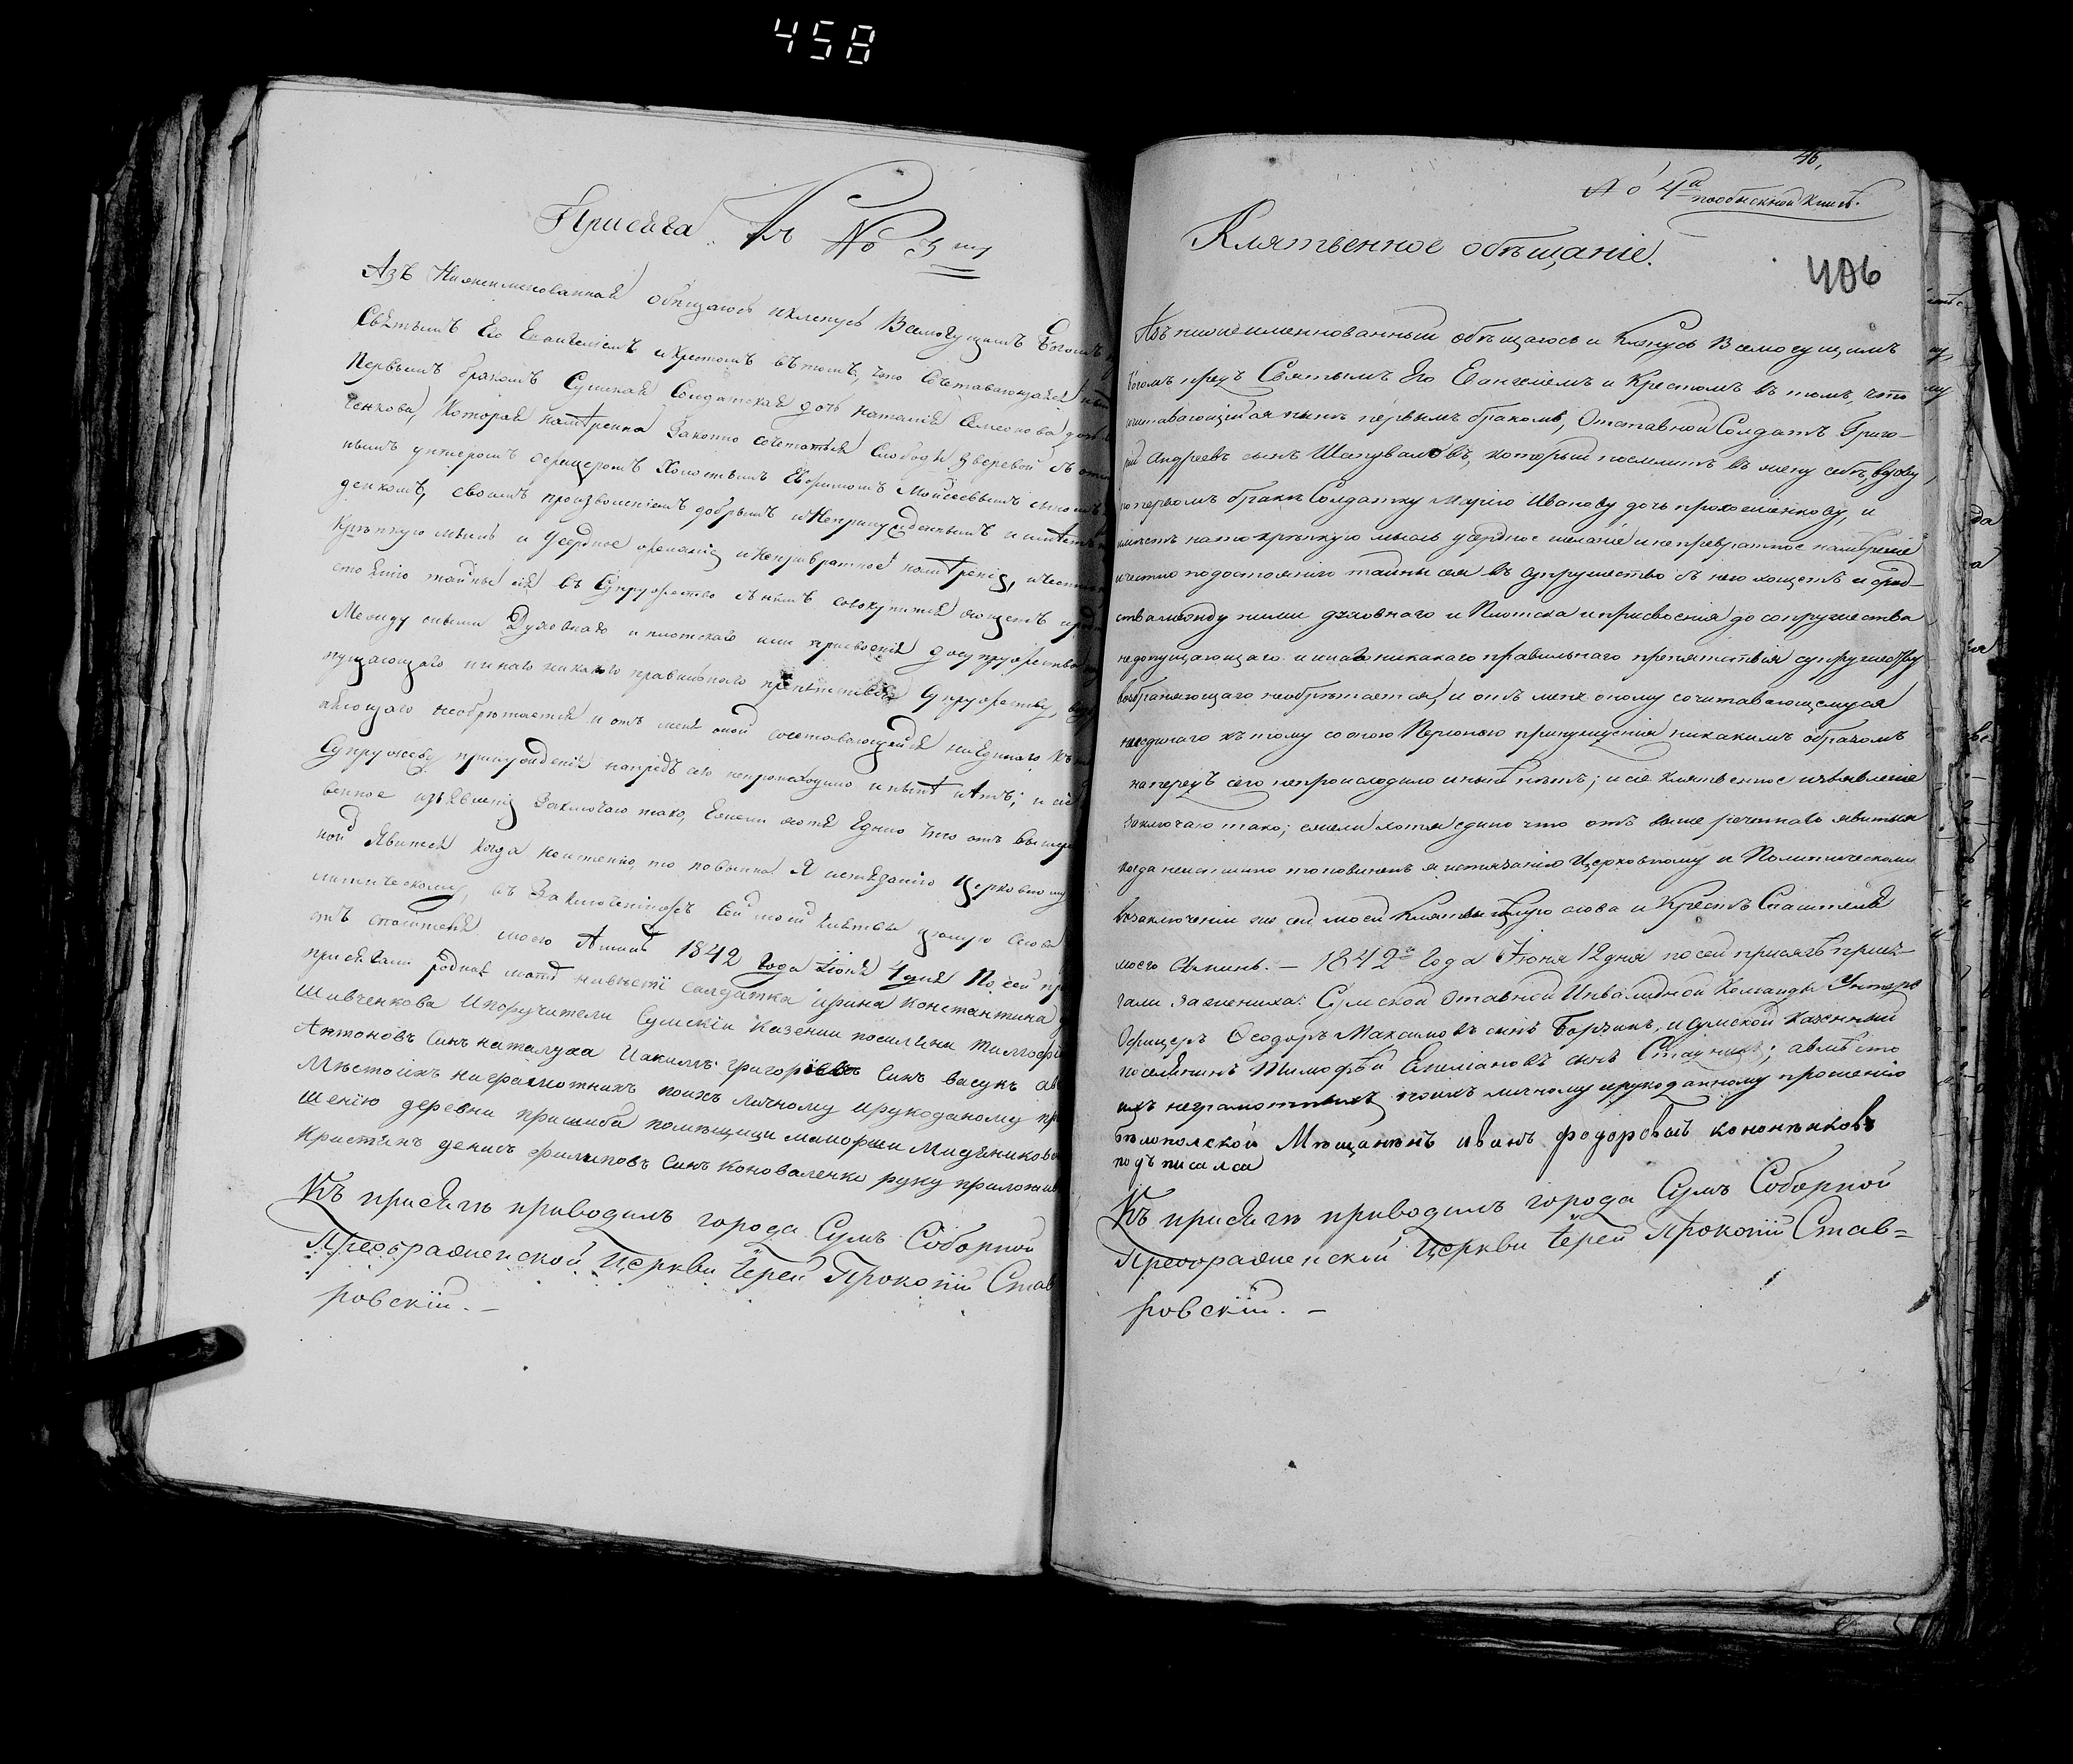 458
Присяга Къ № 3му
Азъ Нижеименованная обѣщаюсь и кленусь Всемогущимъ Богомъ
Святымъ Его Евангеліемъ и Крестомъ вътомъ, что Сочетавающаяся
Первымъ бракомъ Сумская Солдатская дочь наталія Семеонова дочь
ченкова, Которая намѣренна Законно сочетатся Слободы
нымъ унтеромъ офицеромъ Холостымъ Ефимомъ Мойсеевымъ сыномъ
денкомъ, своимъ произволеніемъ добрымъ и Непринужденнымъ и имѣетъ
Крѣпкую мысль и Усердное желаніе и Непревратное намѣреніе, и честно
стоянію тайны сея въ Супружество снимъ совокупится хощетъ
Между сими Духовнаго и плотскаго или присвоенія досупружества
пущающаго и инаго никакого правилнаго препятствія Супружеству,
няющаго необрѣтается и отъ меня оной сочетавающейся ниединаго къ
Супружеству принужденія напредъ сего непроисходило и нынѣ нѣтъ; и сіе
венное изъявленіе Заключаю тако, Ежели хотя Едино что отъ выше
ной Явится когда неистенно, то повинна Я истязанію церковному
литическому, въ Заключеніижъ Сей моей клятвы цѣлую Слова
стъ спасителя моего Аминь 1842 года Іюня 4 дня По сей
присягали родная мать нивѣсти салдатка ирина константина
Шивченкова Ипоручители Сумскіи Казении посиляни
Антоновъ Синъ наталуха Иакимъ григоріевъ Синъ васунъ
Мѣстоихъ ниграмотнихъ поихъ личному ирукоданому
шенію деревни пришиба помѣщици маиорши
Кристянъ денисъ филиповъ Синъ Коноваленко руку приложи
Къ присягѣ приводилъ города Сумъ Соборной
Преображенской Церкви Іерей Прокопій Став
ровскій. —
46,
№ 4й
пообыскной книгѣ.
Клятвенное обѣщаніе.
406
Азъ нижеименнованный обѣщаюсь и Клянусь Всемогущимъ
Богомъ предъ Святымъ Его Евангеліемъ и Крестомъ въ томъ, что
сочетавающійся нынѣ первымъ бракомъ, Отставной Солдатъ Григо-
рій Андреевъ сынъ Шаповаловъ, который поемлитъ въ жену себѣ, вдову,
попервомъ бракѣ Солдатку Марію Иванову дочь прохоменкову, и
имѣетъ нато крѣпкую мысль усердное желаніе и непревратное намѣреніе
и честно подостоянію тайны сея въ супружество съ нею хощетъ и срод-
ства между ними духовнаго и Плотска и присвоенія до сопружества
недопущающаго и инаго никакаго правильнаго препятствія супружеству
возбраняющаго необрѣтается, и отъ меня оному сочитавающемуся
ниединаго къ тому со оною Персоною принуждения никакимъ образомъ
напередъ сего непроисходило и нынѣ нѣтъ; и сіе клятвенное изъявленіе
заключаю тако; ежели хотя едино что отъ выше реченнаго явится
когда неистинно то повиненъ я истязанію Церковному и Политическому
взаключеніи же сей моей Клятвы цѣлую слова и Крестъ Спасителя
моего Аминь. — 1842го Года Іюня 12 дня по сей присягѣ прися-
гали зажениха: Сумской Отавной Инвалидной Команды Унтеръ
Офицеръ Феодоръ Максимовъ сынъ Борзикъ, и Сумской Казенный
поселянинъ Тимофѣй Емеліановъ сынъ Стадникъ; авмѣсто
ихъ неграмотныхъ поихъ личному ирукоданному прошенію
бѣлополской Мѣщанѣнъ иванъ федоровъ кононѣнковъ
подъписался
Къ присягѣ приводилъ города Сумъ Соборной
Преображенской Церкви Іерей Прокопій Став=
ровскій. —